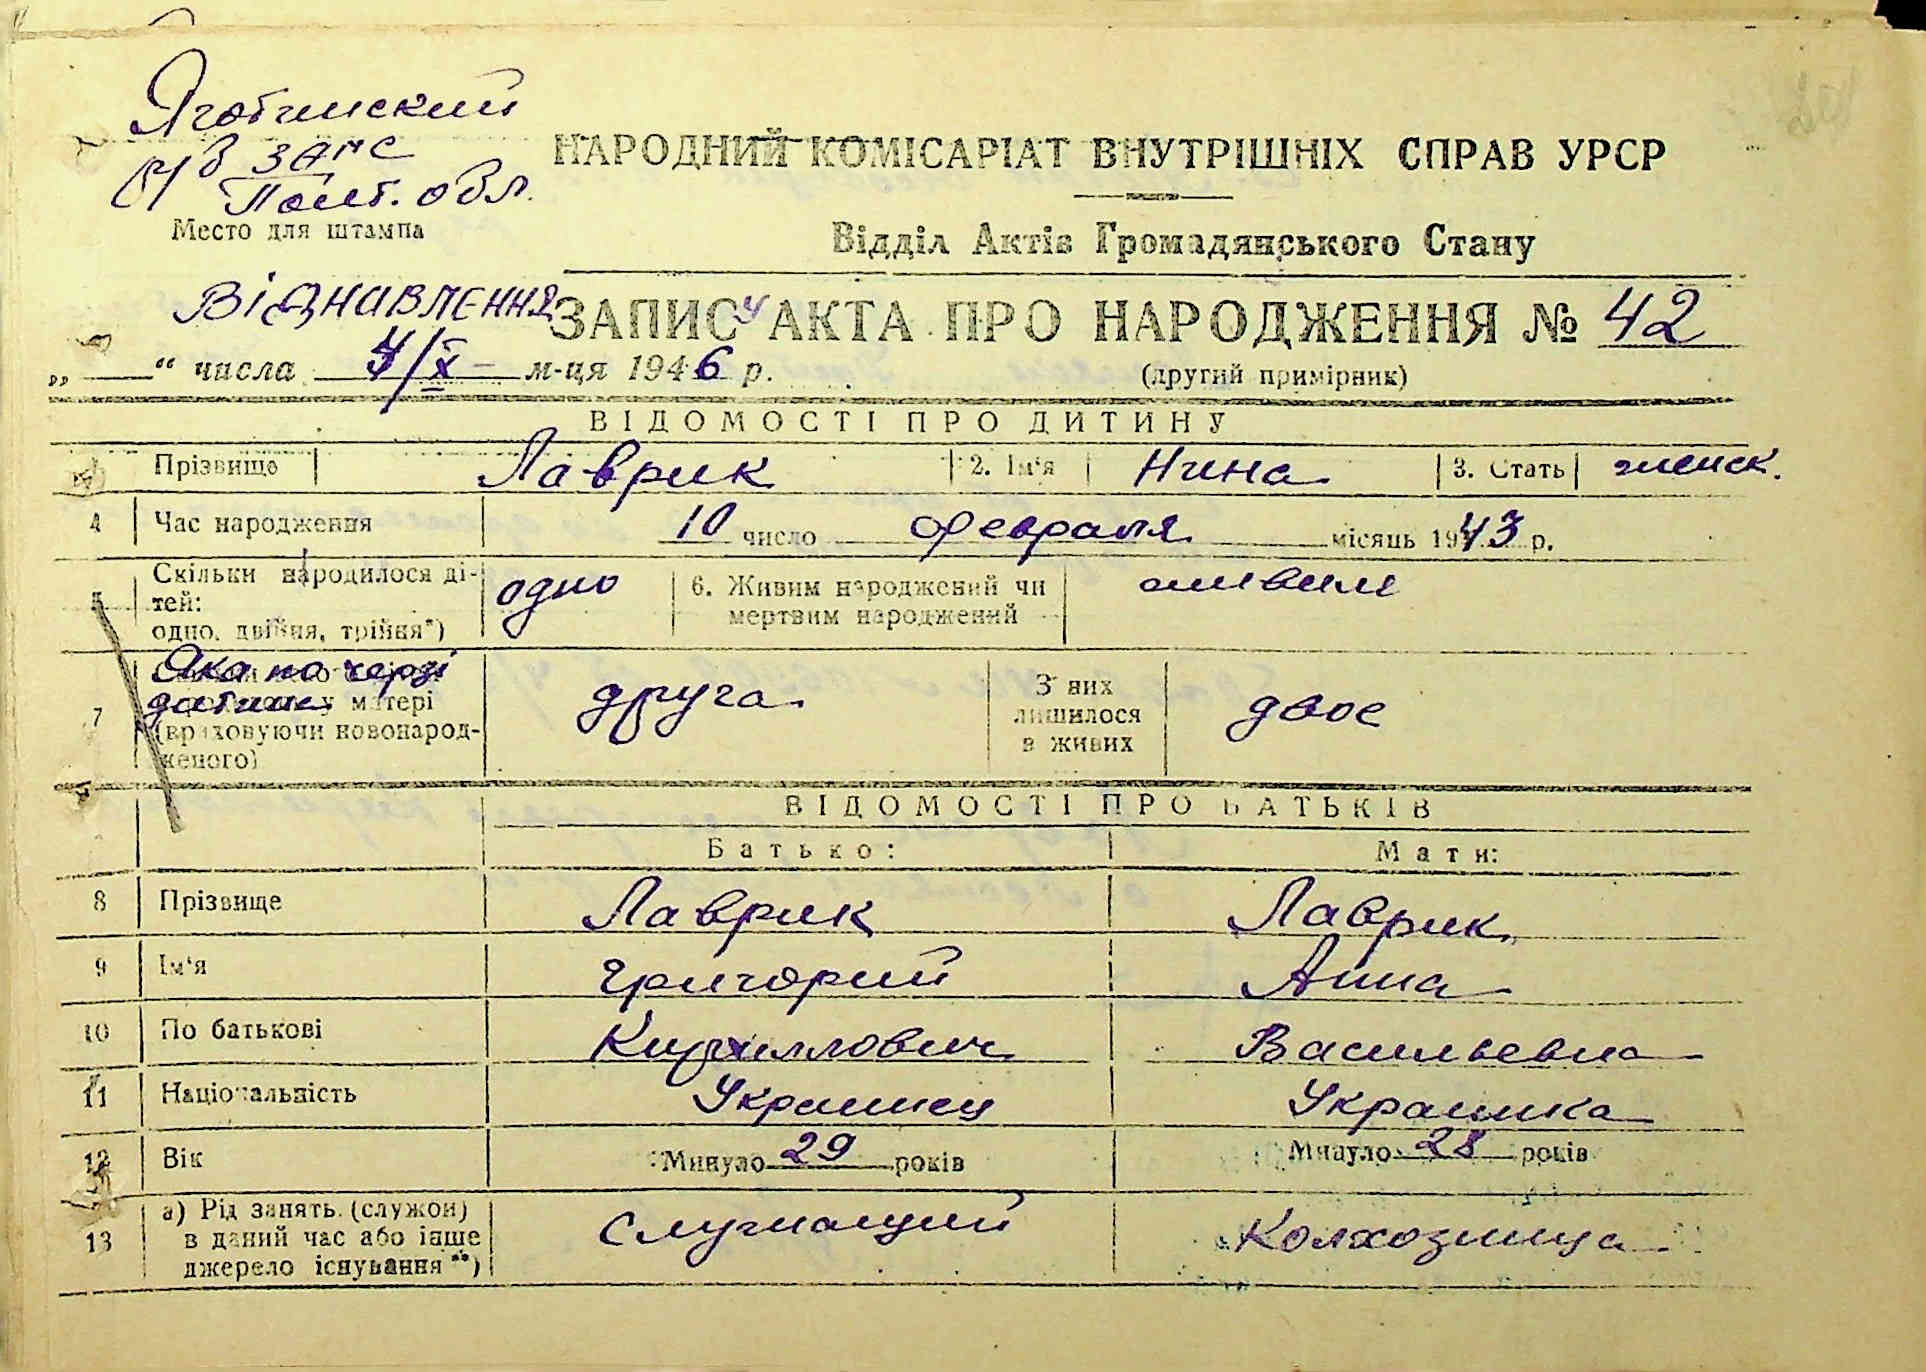 Яготинский
ЗАГС
Полт. обл.
Место для штампа
НАРОДНИЙ КОМІСАРІАТ ВНУТРІШНІХ СПРАВ УРСР
Відділ Актів Громадянського Стану
ВІДНАВЛЕННЯ ЗАПИСУ АКТА ПРО НАРОДЖЕННЯ № 42
„ “ числа 4/X - м-ця 1946 р. (другий примірник)
ВІДОМОСТІ ПРО ДИТИНУ
Прізвище Лаврик 2. Ім‘я Нина 3. Стать женск.
4 Час народження 10 число февраля місяць 1943 р.
5 Скільки народилося ді-
тей:
одно, двійня, трійня*) одно 6. Живим народжений чи
мертвим народжений живым
7 Яка по черзі
дитина у матері
(враховуючи новонарод-
женого) друга З них
лишилося
в живих двое
ВІДОМОСТІ ПРО БАТЬКІВ
Батько: Мати:
8 Прізвище Лаврик Лаврик
9 Ім‘я Григорий Анна
10 По батькові Кириллович Васильевна
11 Національність Украинец Украинка
12 Вік Минуло 29 років Минуло 28 років
13 а) Рід занять (служби)
в даний час або інше
джерело існування**) Служащий Колхозница